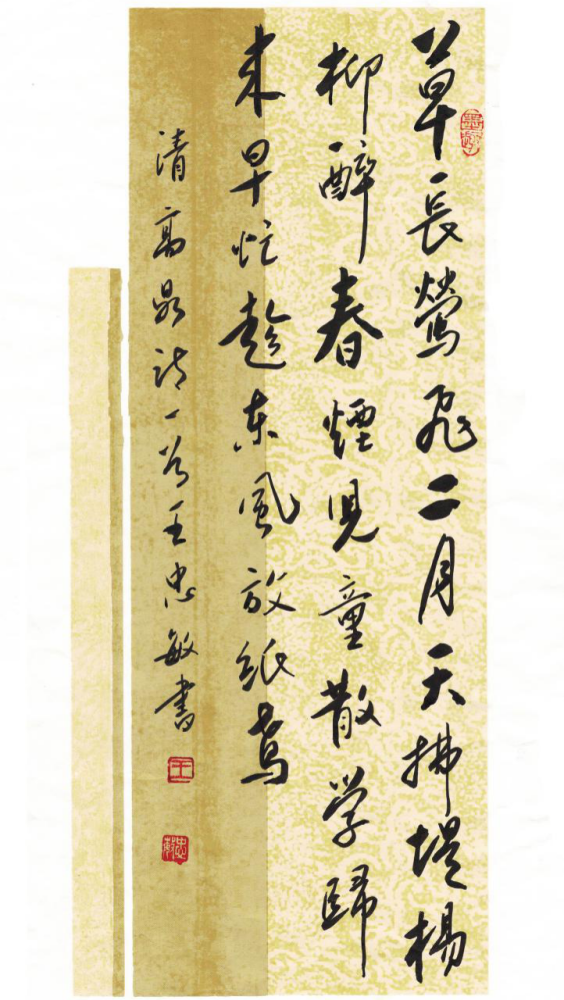 草長鶯飛二月天拂堤楊
柳醉春煙兒童散学歸
来早忙趁东風放紙鳶
清高鼎诗一首王忠敏書
王
忠敏